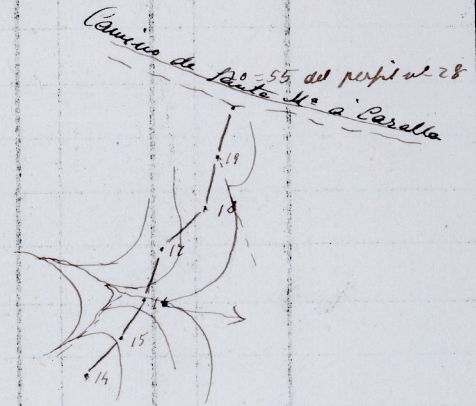 Camino de Santa Mª a Cazalla
20 = 55 del perfil nº 28
19
18
17
16
15
14